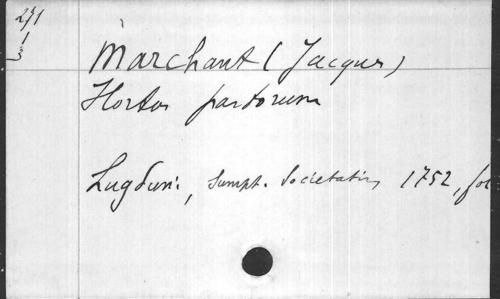 271
1
3
Marchant (Jacques)
Hortos pastorum
Lugduni, sumpt. Societatis, 1752, fol